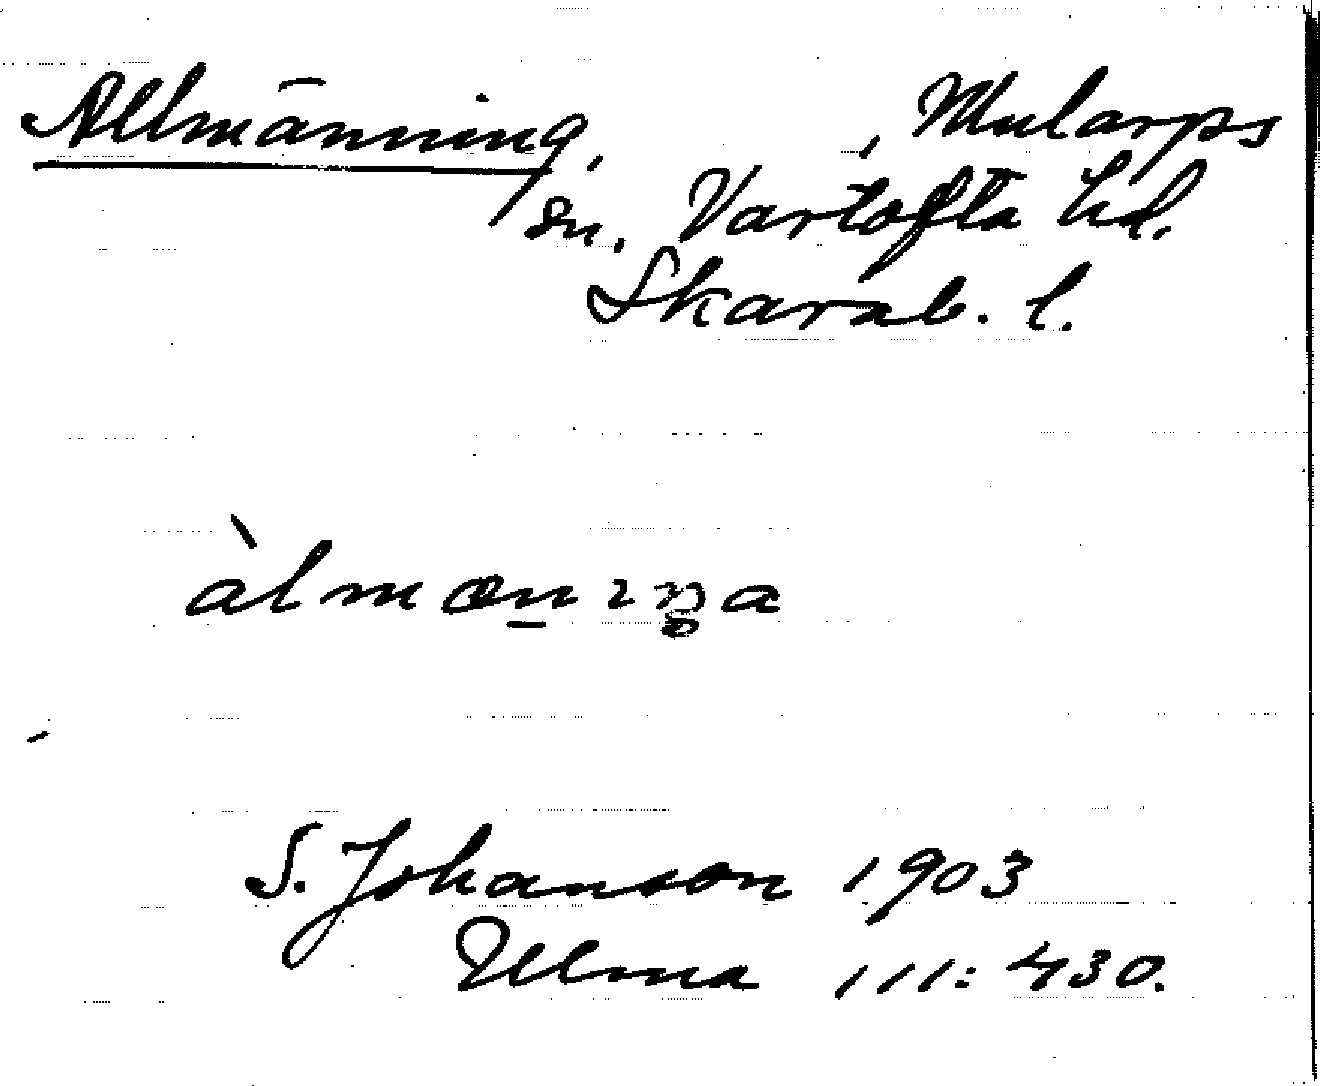 Allmänning, , Mularps
sn. Vartofta hd.
Skarab. l.
àlmænıŋa
S. Johanson 1903
Ulma 111:430.